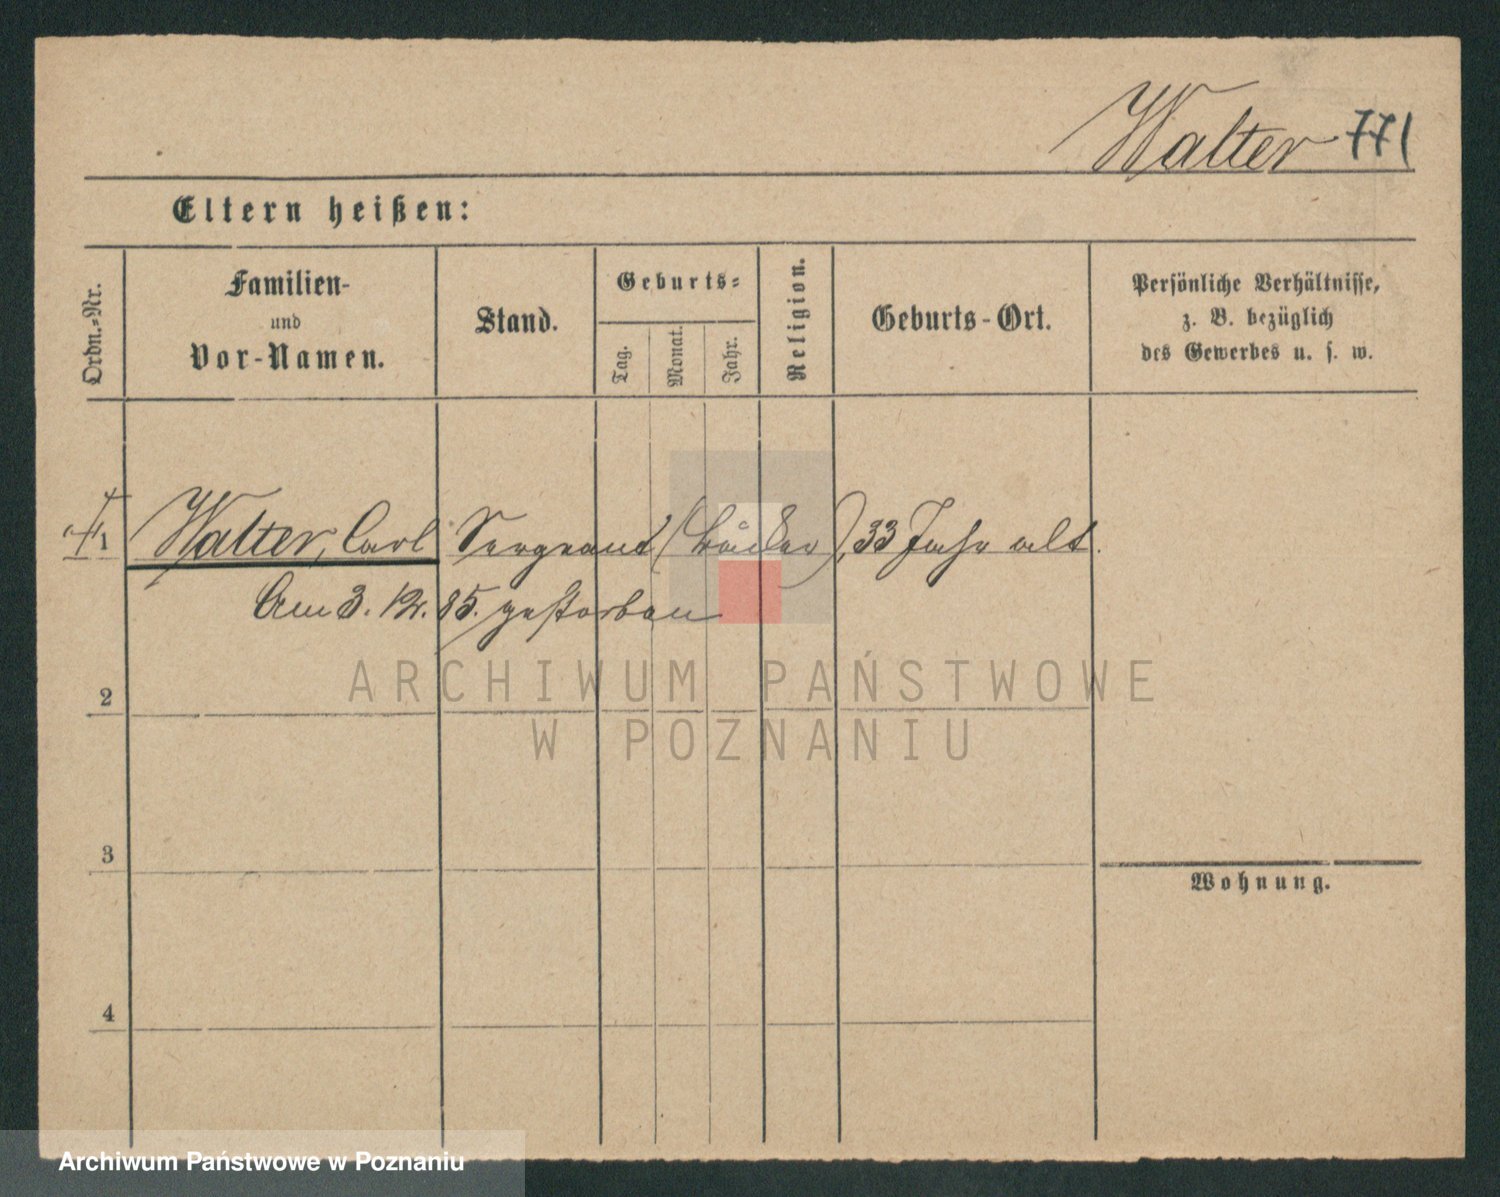 Walter 771
Eltern heißen:
Ordn.-Nr.
Familien-
und
Vor-Namen.
Stand.
Geburts-
Tag.
Monat.
Jahr.
Religion.
Geburts-Ort.
Persönliche Verhältnisse,
z. B. bezüglich
des Gewerbes u. s. w.
1 Walter, Carl Sergeant (Bäcker), 33 Jahr alt.
Am 3. 12. 85. gestorben
2
3
4
Wohnung.
ARCHIWUM PAŃSTWOWE
W POZNANIU
Archiwum Państwowe w Poznaniu